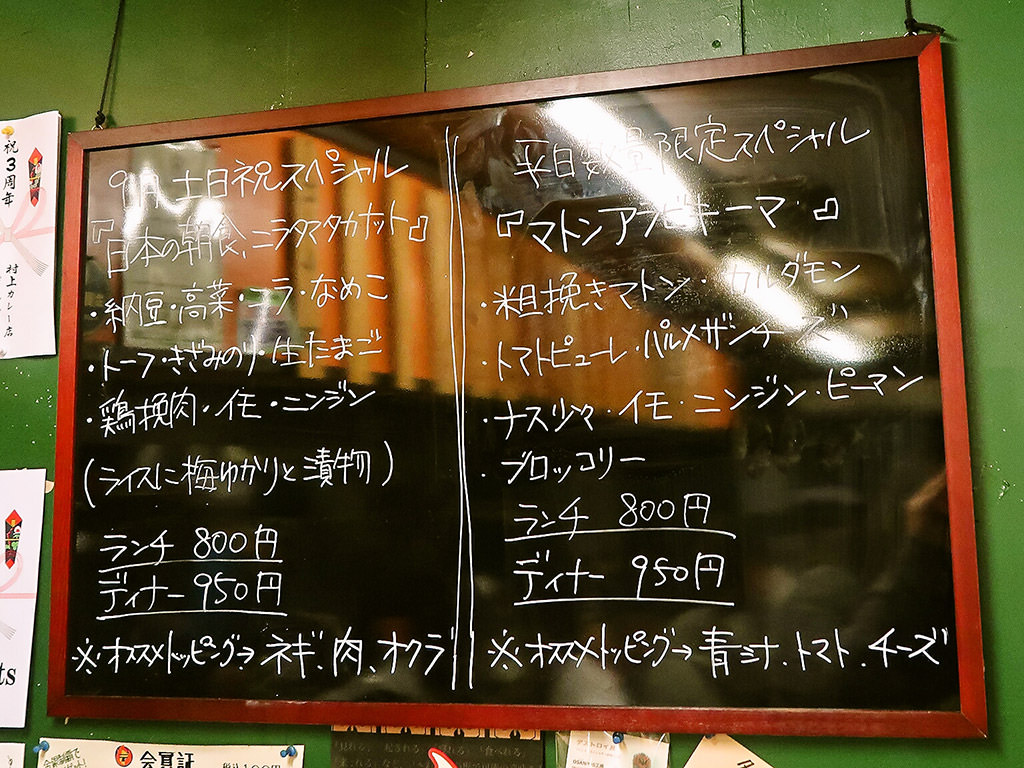 9月 土日祝スペシャル
『日本の朝食、ニラタマタカナット』
・納豆・高菜・ニラ・なめこ
・トーフ・きざみのり・生たまご
・鶏挽肉・イモ・ニンジン
(ライスに梅ゆかりと漬物)
ランチ 800円
ディナー 950円
※オススメトッピング→ネギ、肉、オクラ
平日数量限定スペシャル
『マトンアラビキーマ』
・粗挽きマトン・カルダモン
・トマトピューレ・パルメザンチーズ
・ナス少々・イモ・ニンジン・ピーマン
・ブロッコリー
ランチ 800円
ディナー 950円
※オススメトッピング→青ミナ、トマト、チーズ
祝3周年
村上カレー店
ts
会員証
税込100円
デストロイ